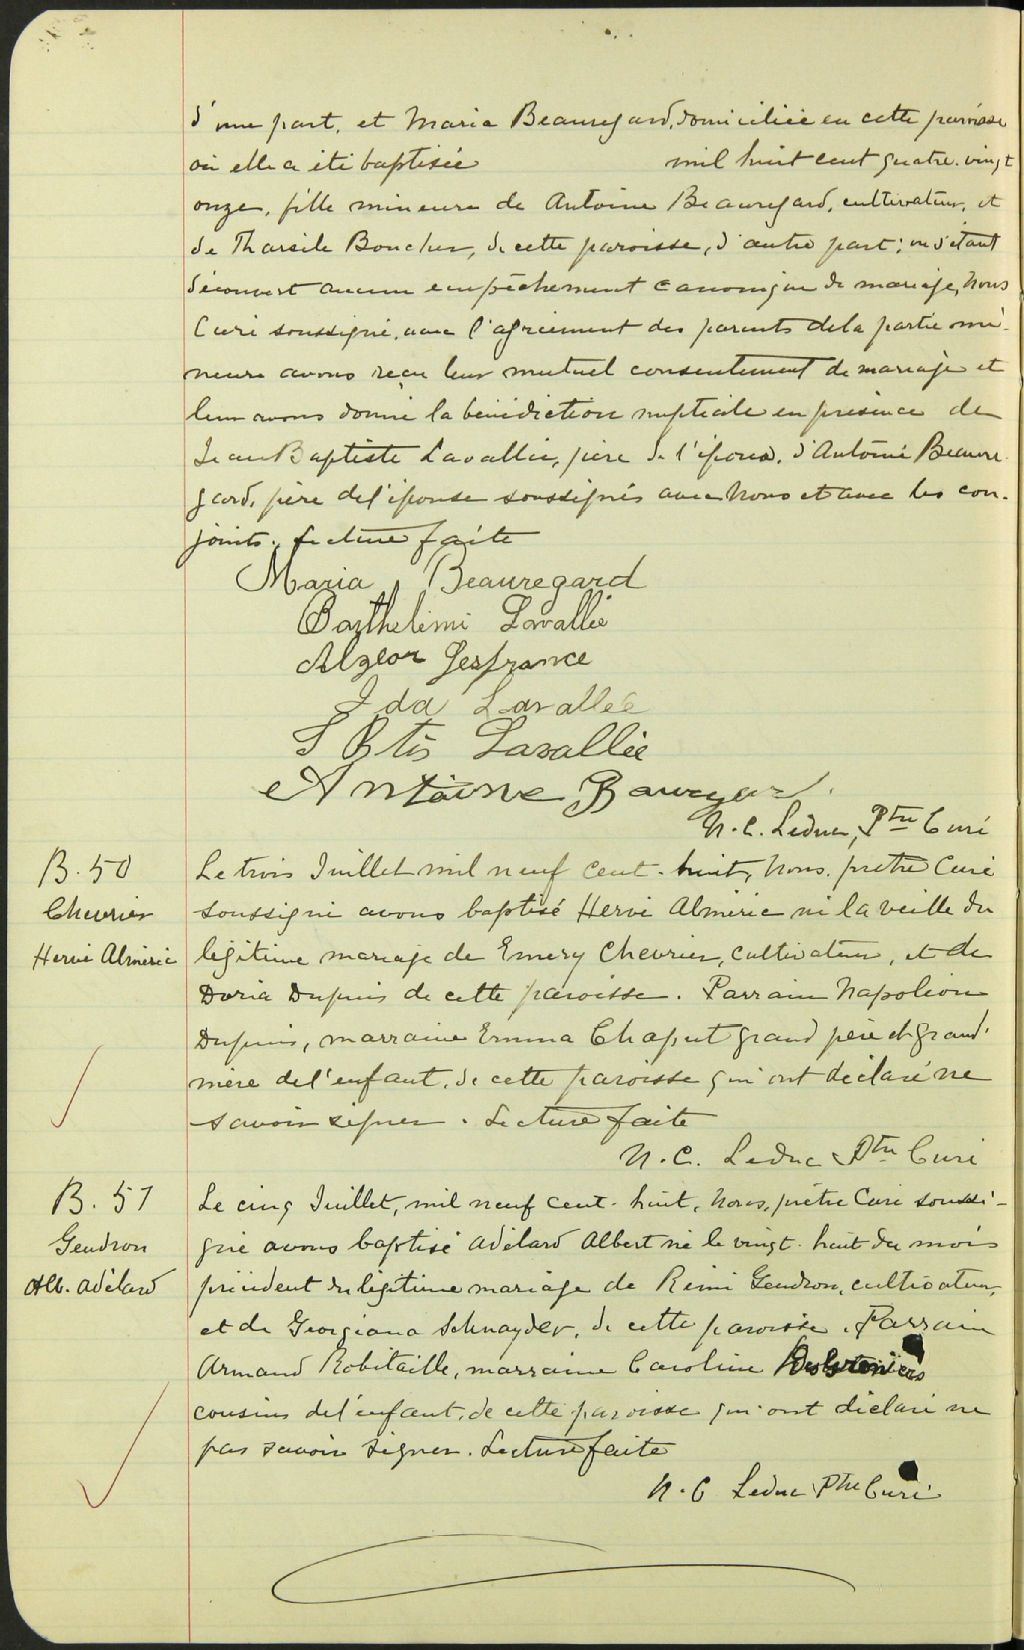 d'une part, et Maria Beauregard, domiciliée en cette paroisse
où elle a été baptisée mil huit cent quatre-vingt
onze, fille mineure de Antoine Beauregard, cultivateur, et
de Tharsile Boucher, de cette paroisse, d'autre part; ne s'étant
découvert aucun empêchement canonique de mariage, Nous
Curé soussigné, avec l'agrément des parents de la partie mi-
neure avons reçu leur mutuel consentement de mariage et
leur avons donné la bénédiction nuptiale en présence de
Jean Baptiste Lavallée, père de l'époux, d'Antoine Beaure-
gard, père de l'épouse soussignés avec Nous et avec les con-
joints. Lecture faite
Maria Beauregard
Barthelémi Lavallée
Alzear Lesfrance
Ida Lavallée
J Btis Lavallée
Antoine Bauregar
N. C. Leduc, Ptre Curé
B. 50
Chevrier
Hervé Almérie
Le trois Juillet mil neuf cent-huit, Nous, prêtre Curé
soussigné avons baptisé Hervé Almérie né la veille du
légitime mariage de Emery Chevrier, cultivateur, et de
Doria Dupuis de cette paroisse. Parrain Napoléon
Dupuis, marraine Emma Chaput grand père et grand'
mère de l'enfant, de cette paroisse qui ont déclaré ne
savoir signer. Lecture faite
N. C. Leduc Ptre Curé
B. 51
Gendron
Alb. Adélard
Le cinq Juillet, mil neuf cent-huit, Nous, prêtre Curé soussi-
gné avons baptisé Adélard Albert né le vingt-huit du mois
précédent du légitime mariage de Rémi Gendron, cultivateur,
et de Georgiana Schnayder, de cette paroisse. Parrain
Armand Robitaille, marraine Caroline
cousins de l'enfant, de cette paroisse qui ont déclaré ne
pas savoir signer. Lecture faite
N. C Leduc Ptre Curé